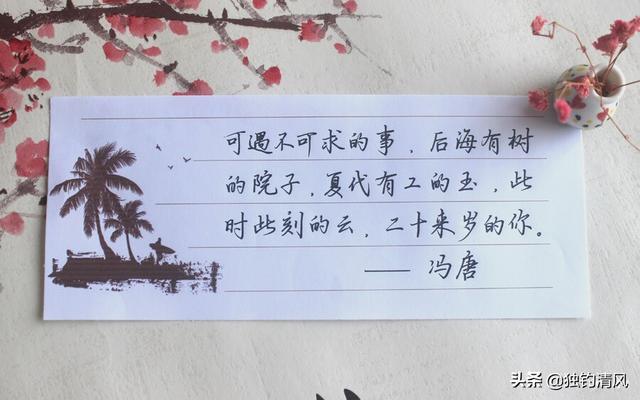 可遇不可求的事，后海有树
的院子，夏代有工的玉，此
时此刻的云，二十来岁的你。
—— 冯唐
头条 @独钓清风